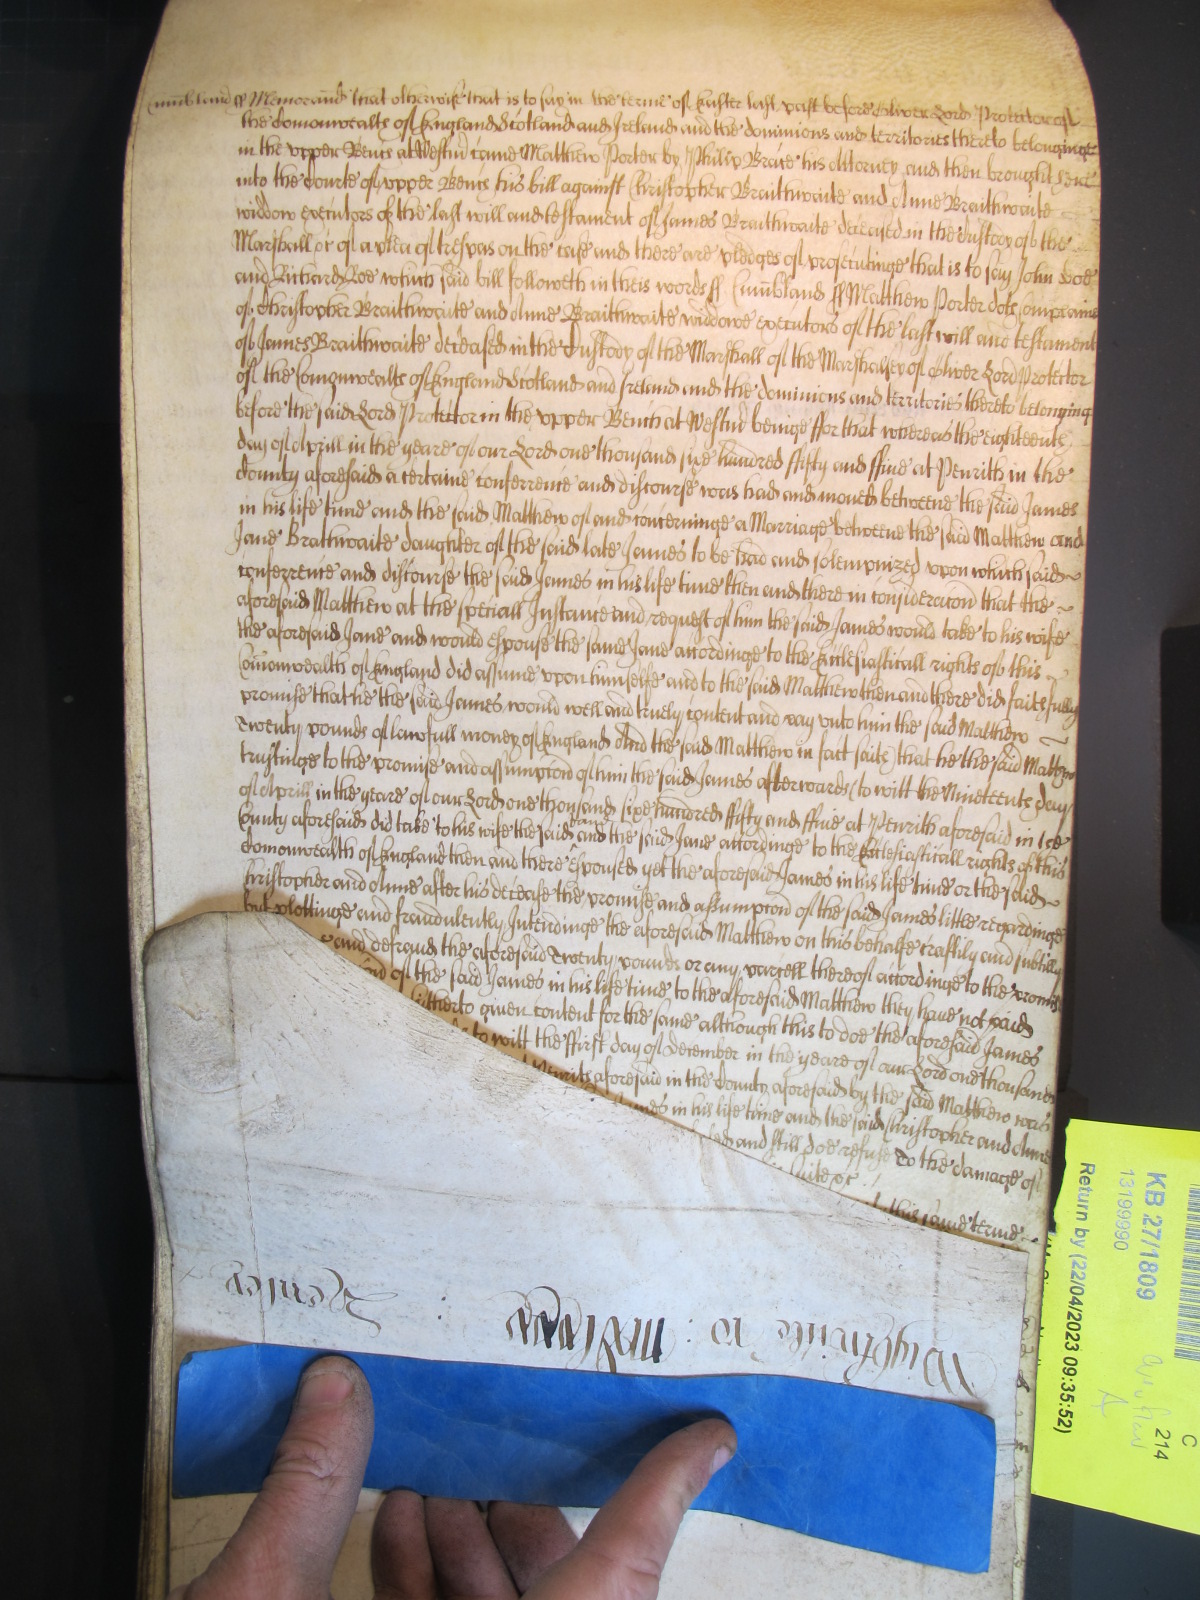 Cumbland ss Memorand that otherwise that is to say in the terme of Easter last past before Oliver Lord Protector of
the Comonwealth of England Scotland and Ireland and the dominions and territories thereto belonginge
in the vpper Bench at Westmr came Matthew Porter by Philip Brace his Attorney and then brought here
into the Courte of vpper Bench his bill against Christopher Braithwaite and Anne Braithwaite
widdow executors of the last will and testament of James Braithwaite deceased in the Custody of the
Marshall &c of a plea of trespas on the case and there are pledges of prosecutinge that is to say John Doe
and Richard Roe which said bill followeth in theis words ss Cumbland ss Matthew Porter doth complaine
of Christopher Braithwaite and Anne Braithwaite widdowe executors of the last will and testament
of James Braithwaite deceased in the Custody of the Marshall of the Marshalsey of Oliver Lord Protector
of the Comonwealth of England Scotland and Ireland and the dominions and territories thereto belonging
before the said Lord Protector in the vpper Bench at Westmr beinge ffor that whereas the eighteenth
day of Aprill in the yeare of our Lord one thousand sixe hundred ffifty and ffive at Penrith in the
County aforesaid a certaine conferrence and discourse was had and moued betweene the said James
in his life time and the said Matthew of and concerninge a Marriage betweene the said Matthew and
Jane Braithwaite daughter of the said late James to be had and solempnized vpon which said
conferrence and discourse the said James in his life time then and there in consideracon that the
aforesaid Matthew at the speciall Instance and request of him the said James would take to his wife
the aforesaid Jane and would espouse the same Jane accordinge to the Ecclesiasticall rights of this
Comonwealth of England did assume vpon himselfe and to the said Matthew then and there did faithfully
promise that he the said James would well and truely content and pay vnto him the said Matthew
Twenty pounds of lawfull money of England And the said Matthew in fact saith that he the said Matthew
trustinge to the promise and assumption of him the said James afterwards to witt the Nineteenth day
of Aprill in the yeare of our Lord one thousand sixe hundred ffifty and ffive at Penrith aforesaid in the
County aforesaid did take to his wife the said Jane and the said Jane accordinge to the Ecclesiasticall rights of this
Comonwealth of England then and there Espoused yet the aforesaid James in his life time or the said
Christopher and Anne after his decease the promise and assumption of the said James little regardinge
but plottinge and fraudulently Intendinge the aforesaid Matthew on this behalfe craftily and subtilly
and defraud the aforesaid Twenty pounds or any parcell thereof accordinge to the promise
of the said James in his life time to the aforesaid Matthew they have not paid
hitherto given content for the same although this to doe the aforesaid James
to witt the ffirst day of December in the yeare of our Lord one thousand
Penrith aforesaid in the County aforesaid by the said Matthew was
James in his life time and the said Christopher and Anne
and still doe refuse To the damage of
suite &c
this same terme
KB 27/1809
13199990
Return by (22/04/2023 09:35:52)
C
214
A